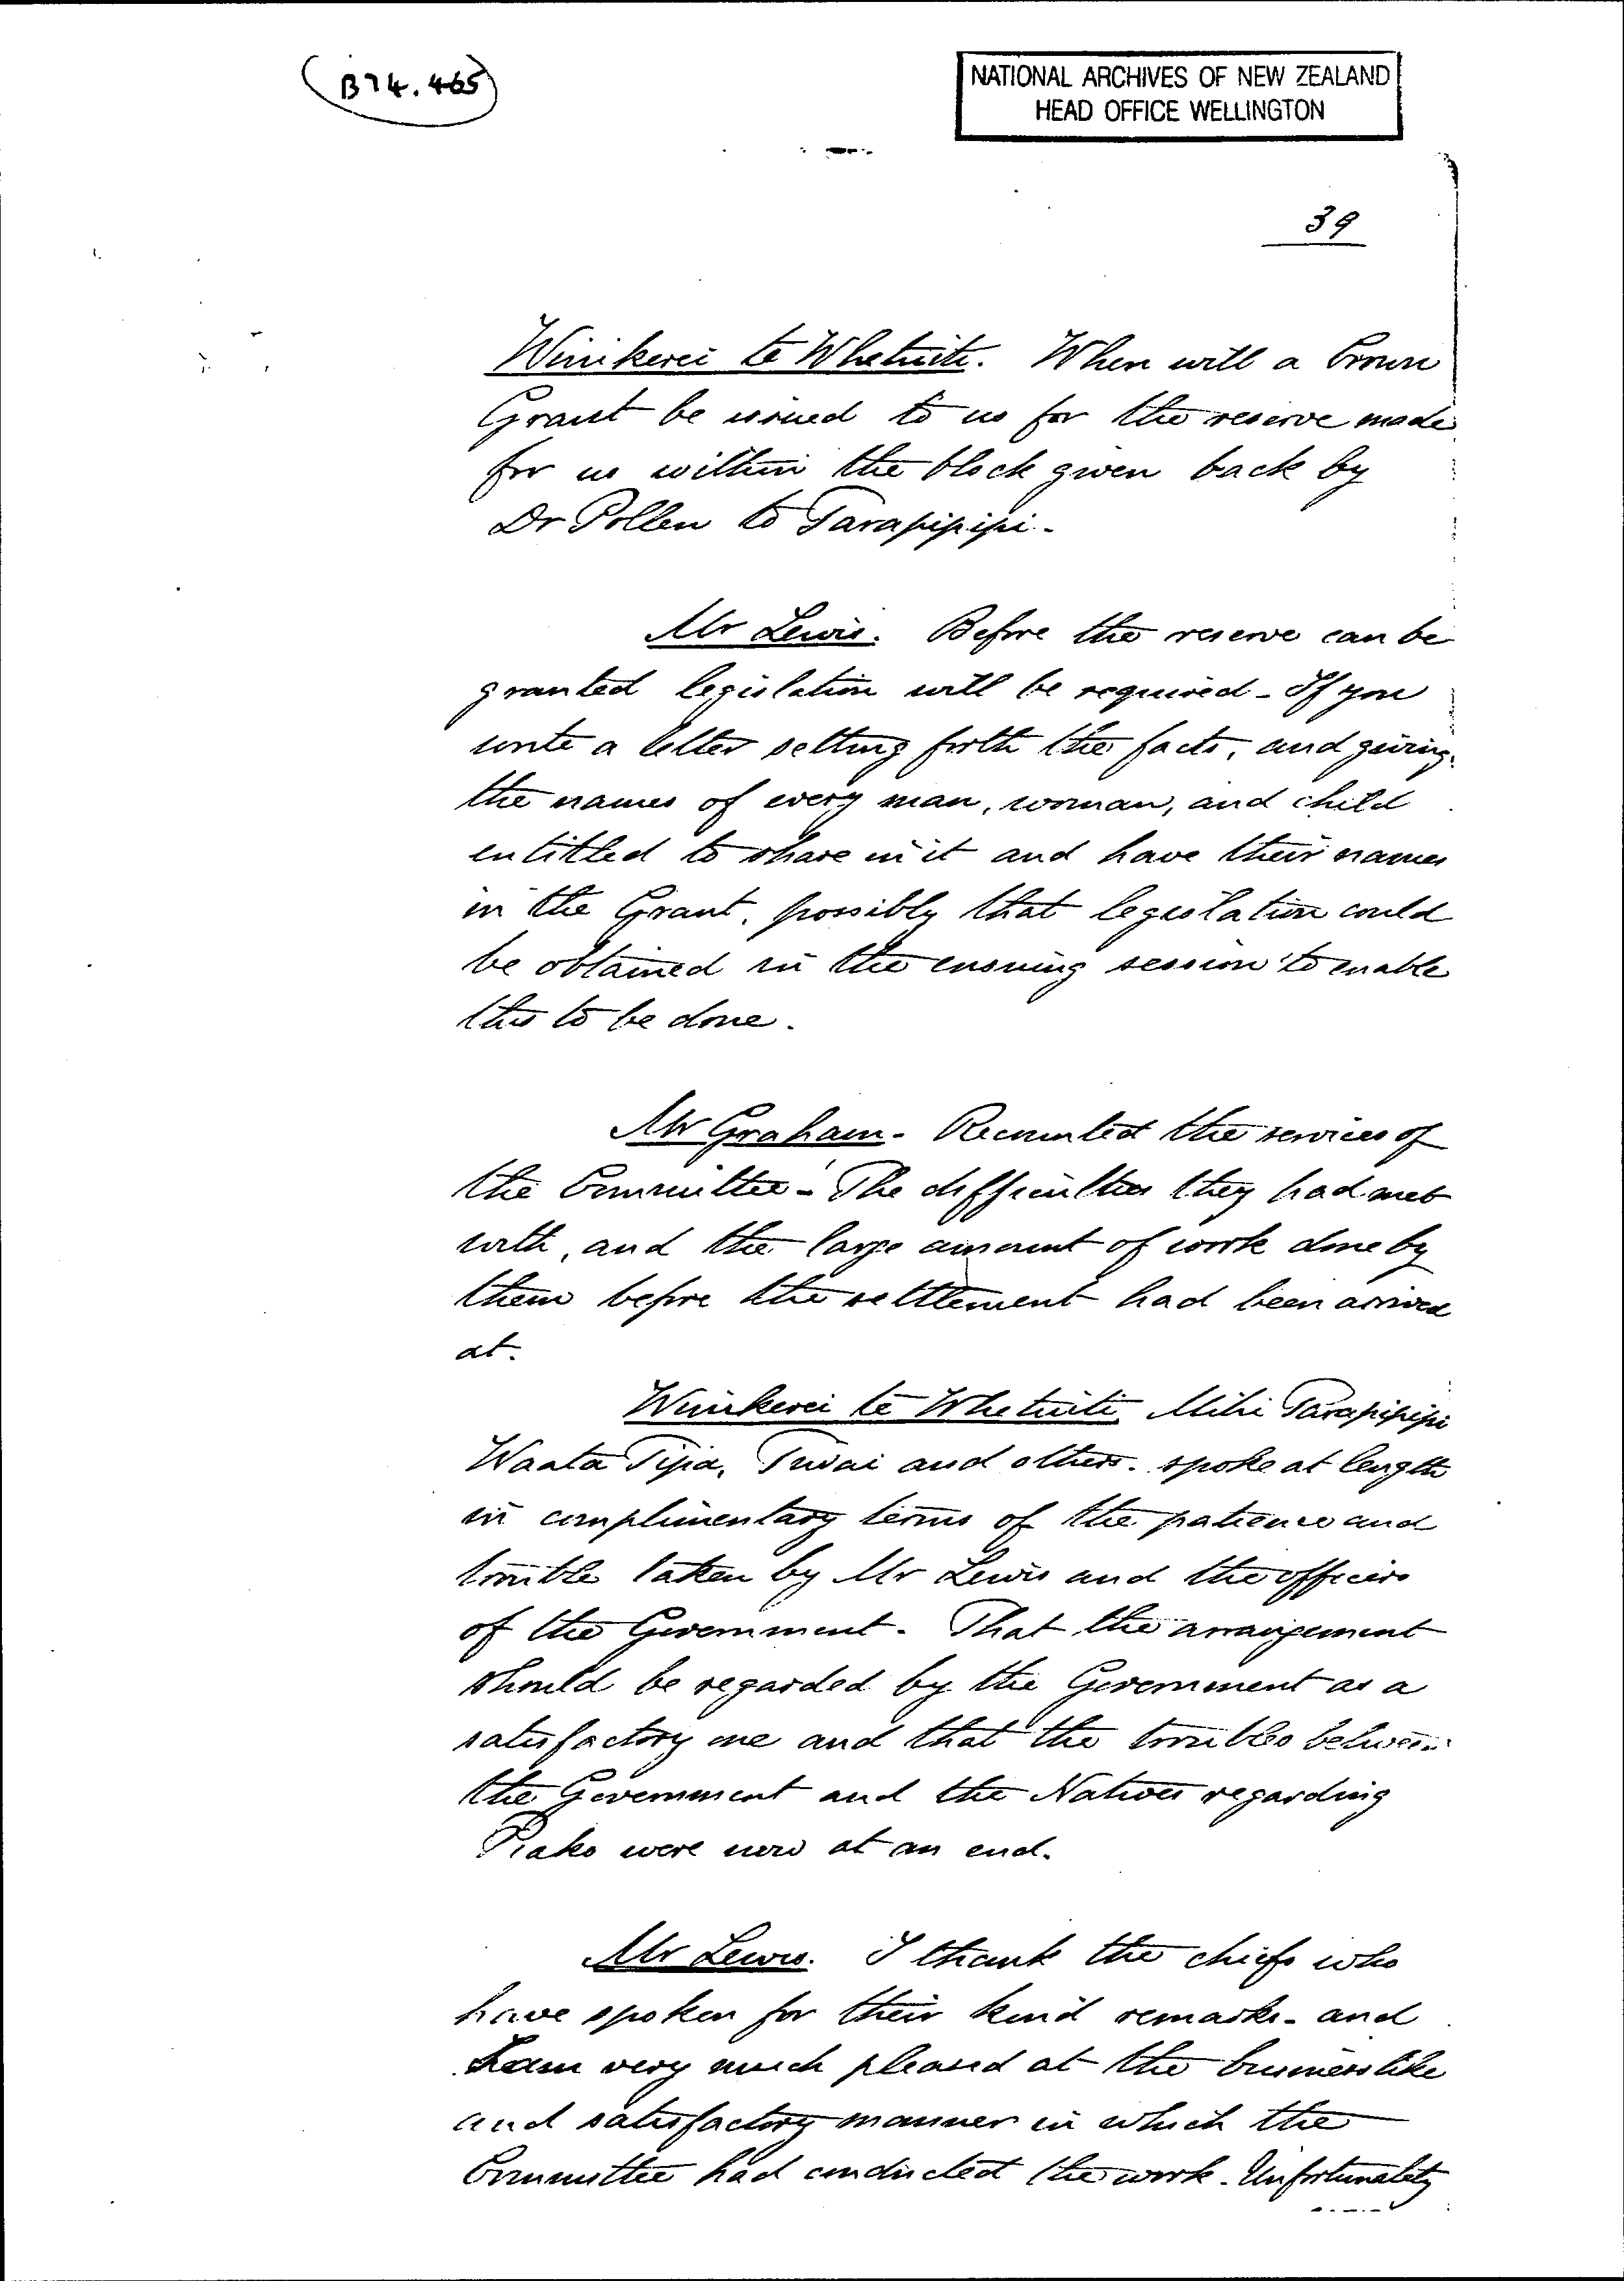 B74.465
NATIONAL ARCHIVES OF NEW ZEALAND
HEAD OFFICE WELLINGTON
39
Wirikerei te Whetuiti. When will a Crown
Grant be issued to us for the reserve made
for us within the block given back by
Dr Pollen to Tarapipipi -
Mr Lewis. Before the reserve can be
granted legislation will be required - If you
write a letter setting forth the facts, and giving
the names of every man, woman, and child
entitled to share in it and have their names
in the Grant, possibly that legislation could
be obtained in the ensuing session to enable
this to be done.
Mr Graham - Recounted the services of
the Committee - The difficulties they had met
with, and the large amount of work done by
them before the settlement had been arrived
at.
Wirikerei te Whetuiti, Mihi Tarapipipi
Waata Tipa, and others. spoke at length
in complimentary terms of the patience and
trouble taken by Mr Lewis and the officers
of the Government. That the arrangement
should be regarded by the Government as a
satisfactory one and that the troubles between
the Government and the Natives regarding
Piako were now at an end.
Mr Lewis. I thank the chiefs who
have spoken for their kind remarks - and
I am very much pleased at the businesslike
and satisfactory manner in which the
Committee had conducted the work. Unfortunately